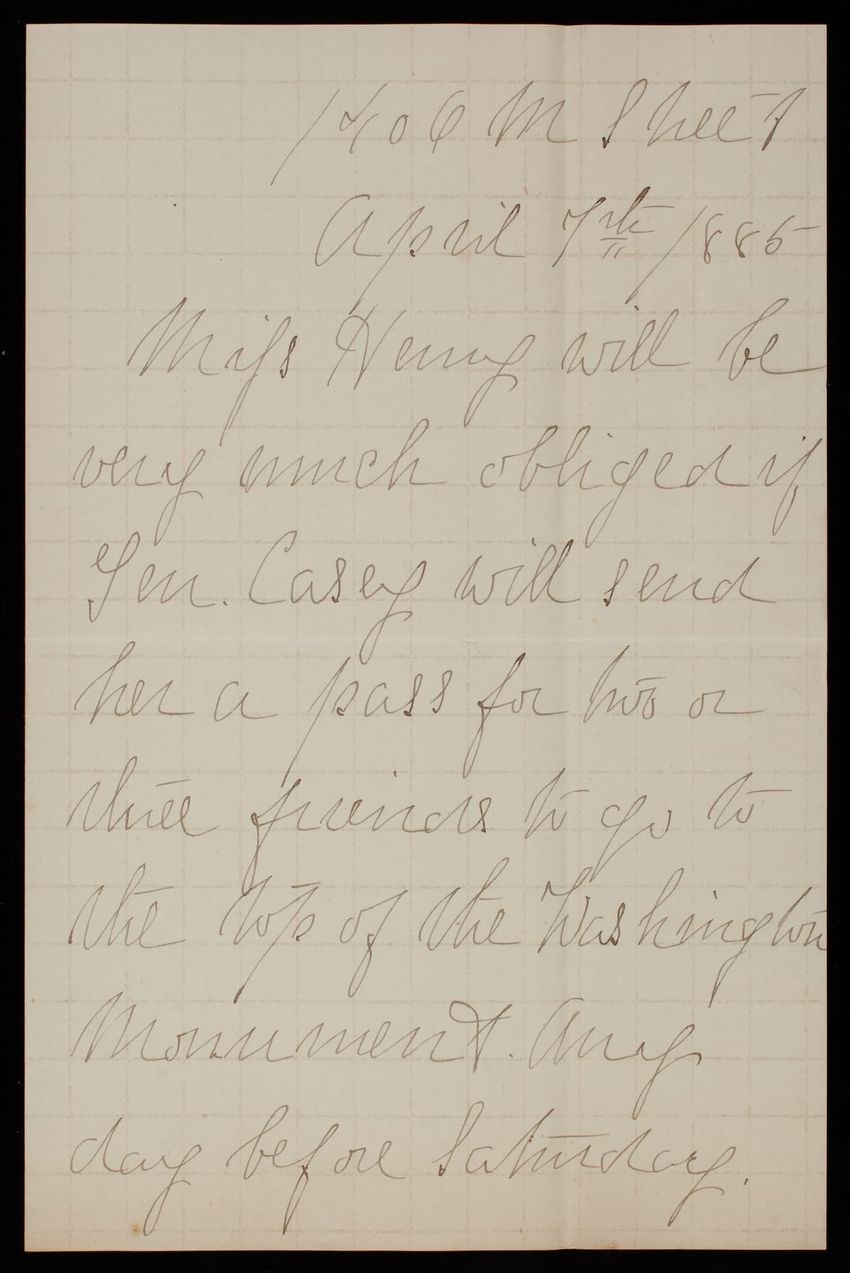 1406 M Street
April 7th 1885
Miss Henry will be
very much obliged if
Gen. Casey will send
her a pass for two or
three friends to go to
the top of the Washington
Monument. Any
day before Saturday.